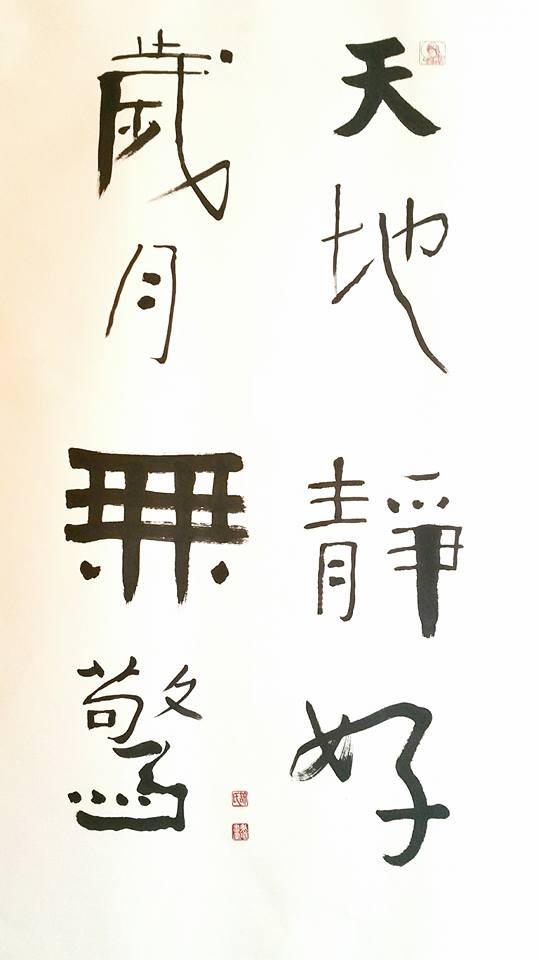 天地靜好
歲月無驚